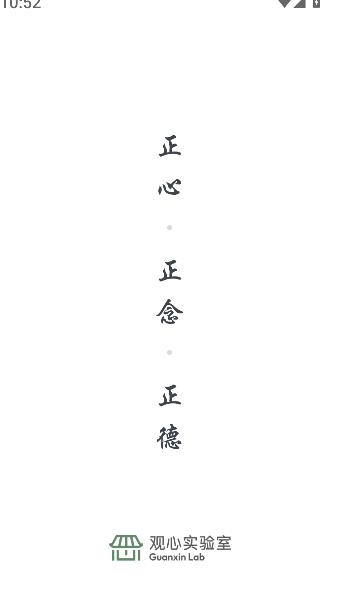 10:52
正心·正念·正德
观心实验室
Guanxin Lab